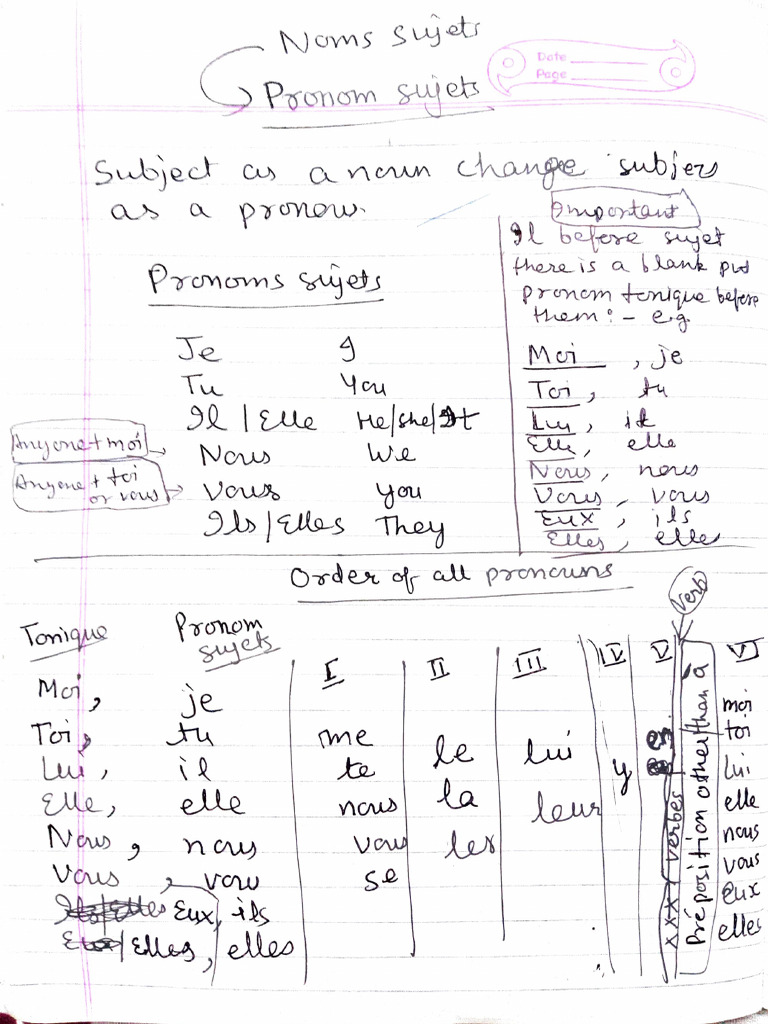 Noms sujets
Date
Page
Pronom sujets
Subject as a noun change subjers
as a pronow.
Important
Il before sujet
there is a blank put
pronom tonique before
them :- e.g.
Pronoms sujets
Je I
Tu You
Il / Elle He/she/It
Nous We
Vous you
Ils / Elles They
Anyone + moi
Anyone + toi
or vous
Moi , je
Toi , tu
Lui , il
Elle, elle
Nous, nous
Vous , vous
Eux , ils
Elles, elle
Order of all pronouns
Verb
Tonique Pronom
sujets
I II III IV V VI
Moi, je
Toi, tu
Lui, il
Elle, elle
Nous, nous
Vous, vou
Eux, ils
/ Elles, elles
me
te
nous
vous
se
le
la
les
lui
leur
y
en
xxx / verbes
Préposition other than à
moi
toi
Lui
elle
nous
vous
eux
elles